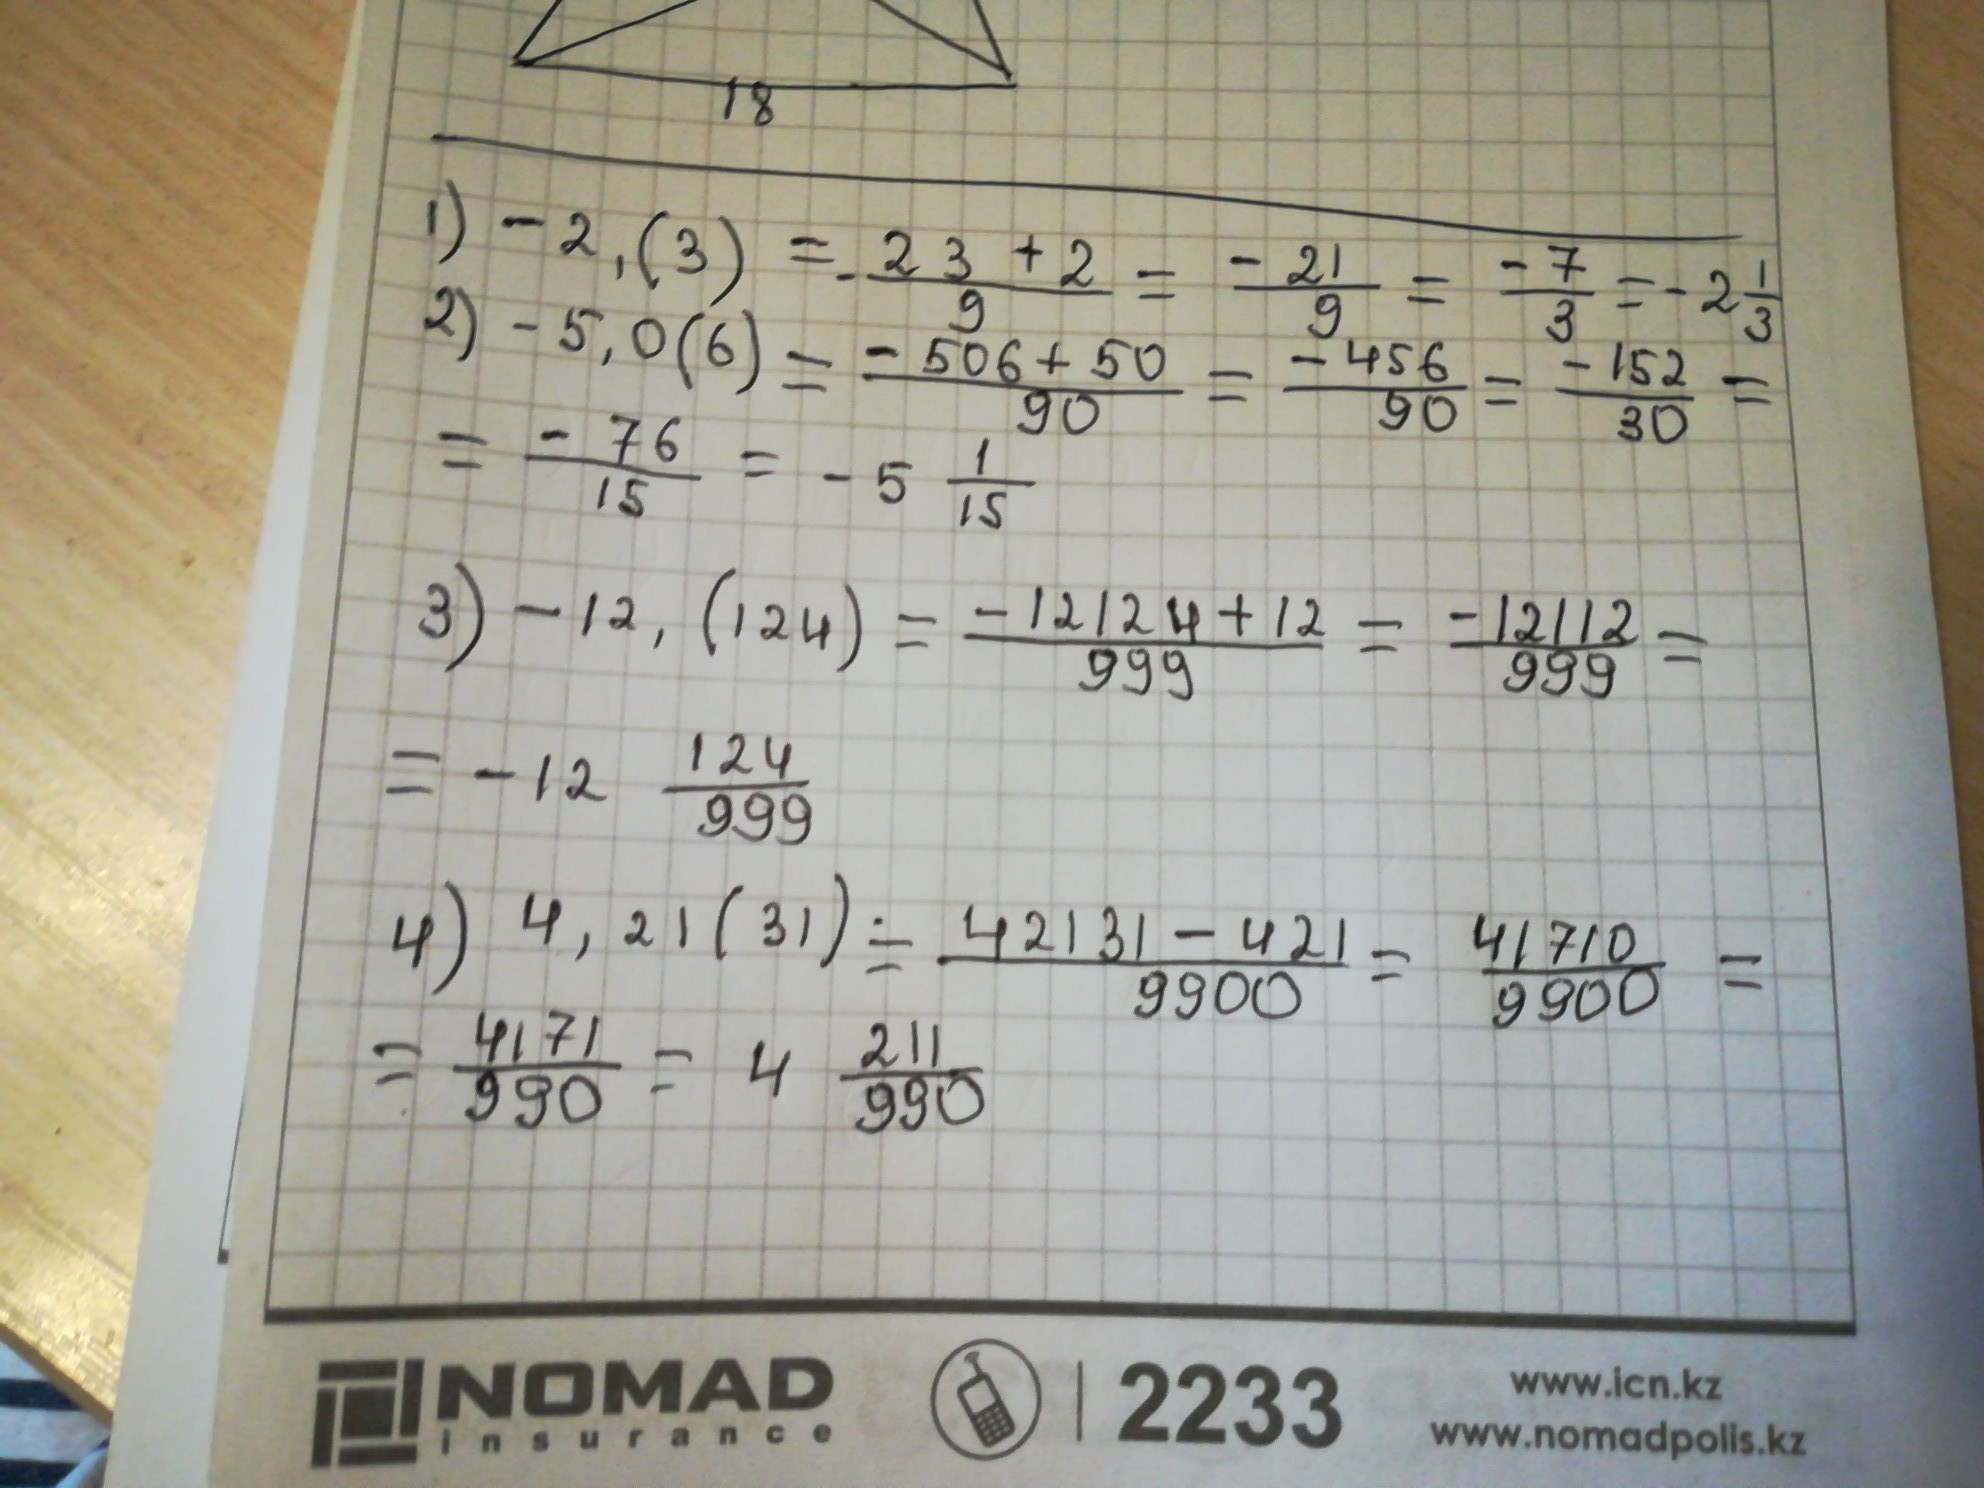 18
1) -2,(3) = -\frac{23+2}{9} = \frac{-21}{9} = \frac{-7}{3} = -2\frac{1}{3}
2) -5,0(6) = \frac{-506+50}{90} = \frac{-456}{90} = \frac{-152}{30} =
= \frac{-76}{15} = -5\frac{1}{15}
3) -12,(124) = \frac{-12124+12}{999} = \frac{-12112}{999} =
= -12\frac{124}{999}
4) 4,21(31) = \frac{42131-421}{9900} = \frac{41710}{9900} =
= \frac{4171}{990} = 4\frac{211}{990}
NOMAD
insurance
2233
www.icn.kz
www.nomadpolis.kz